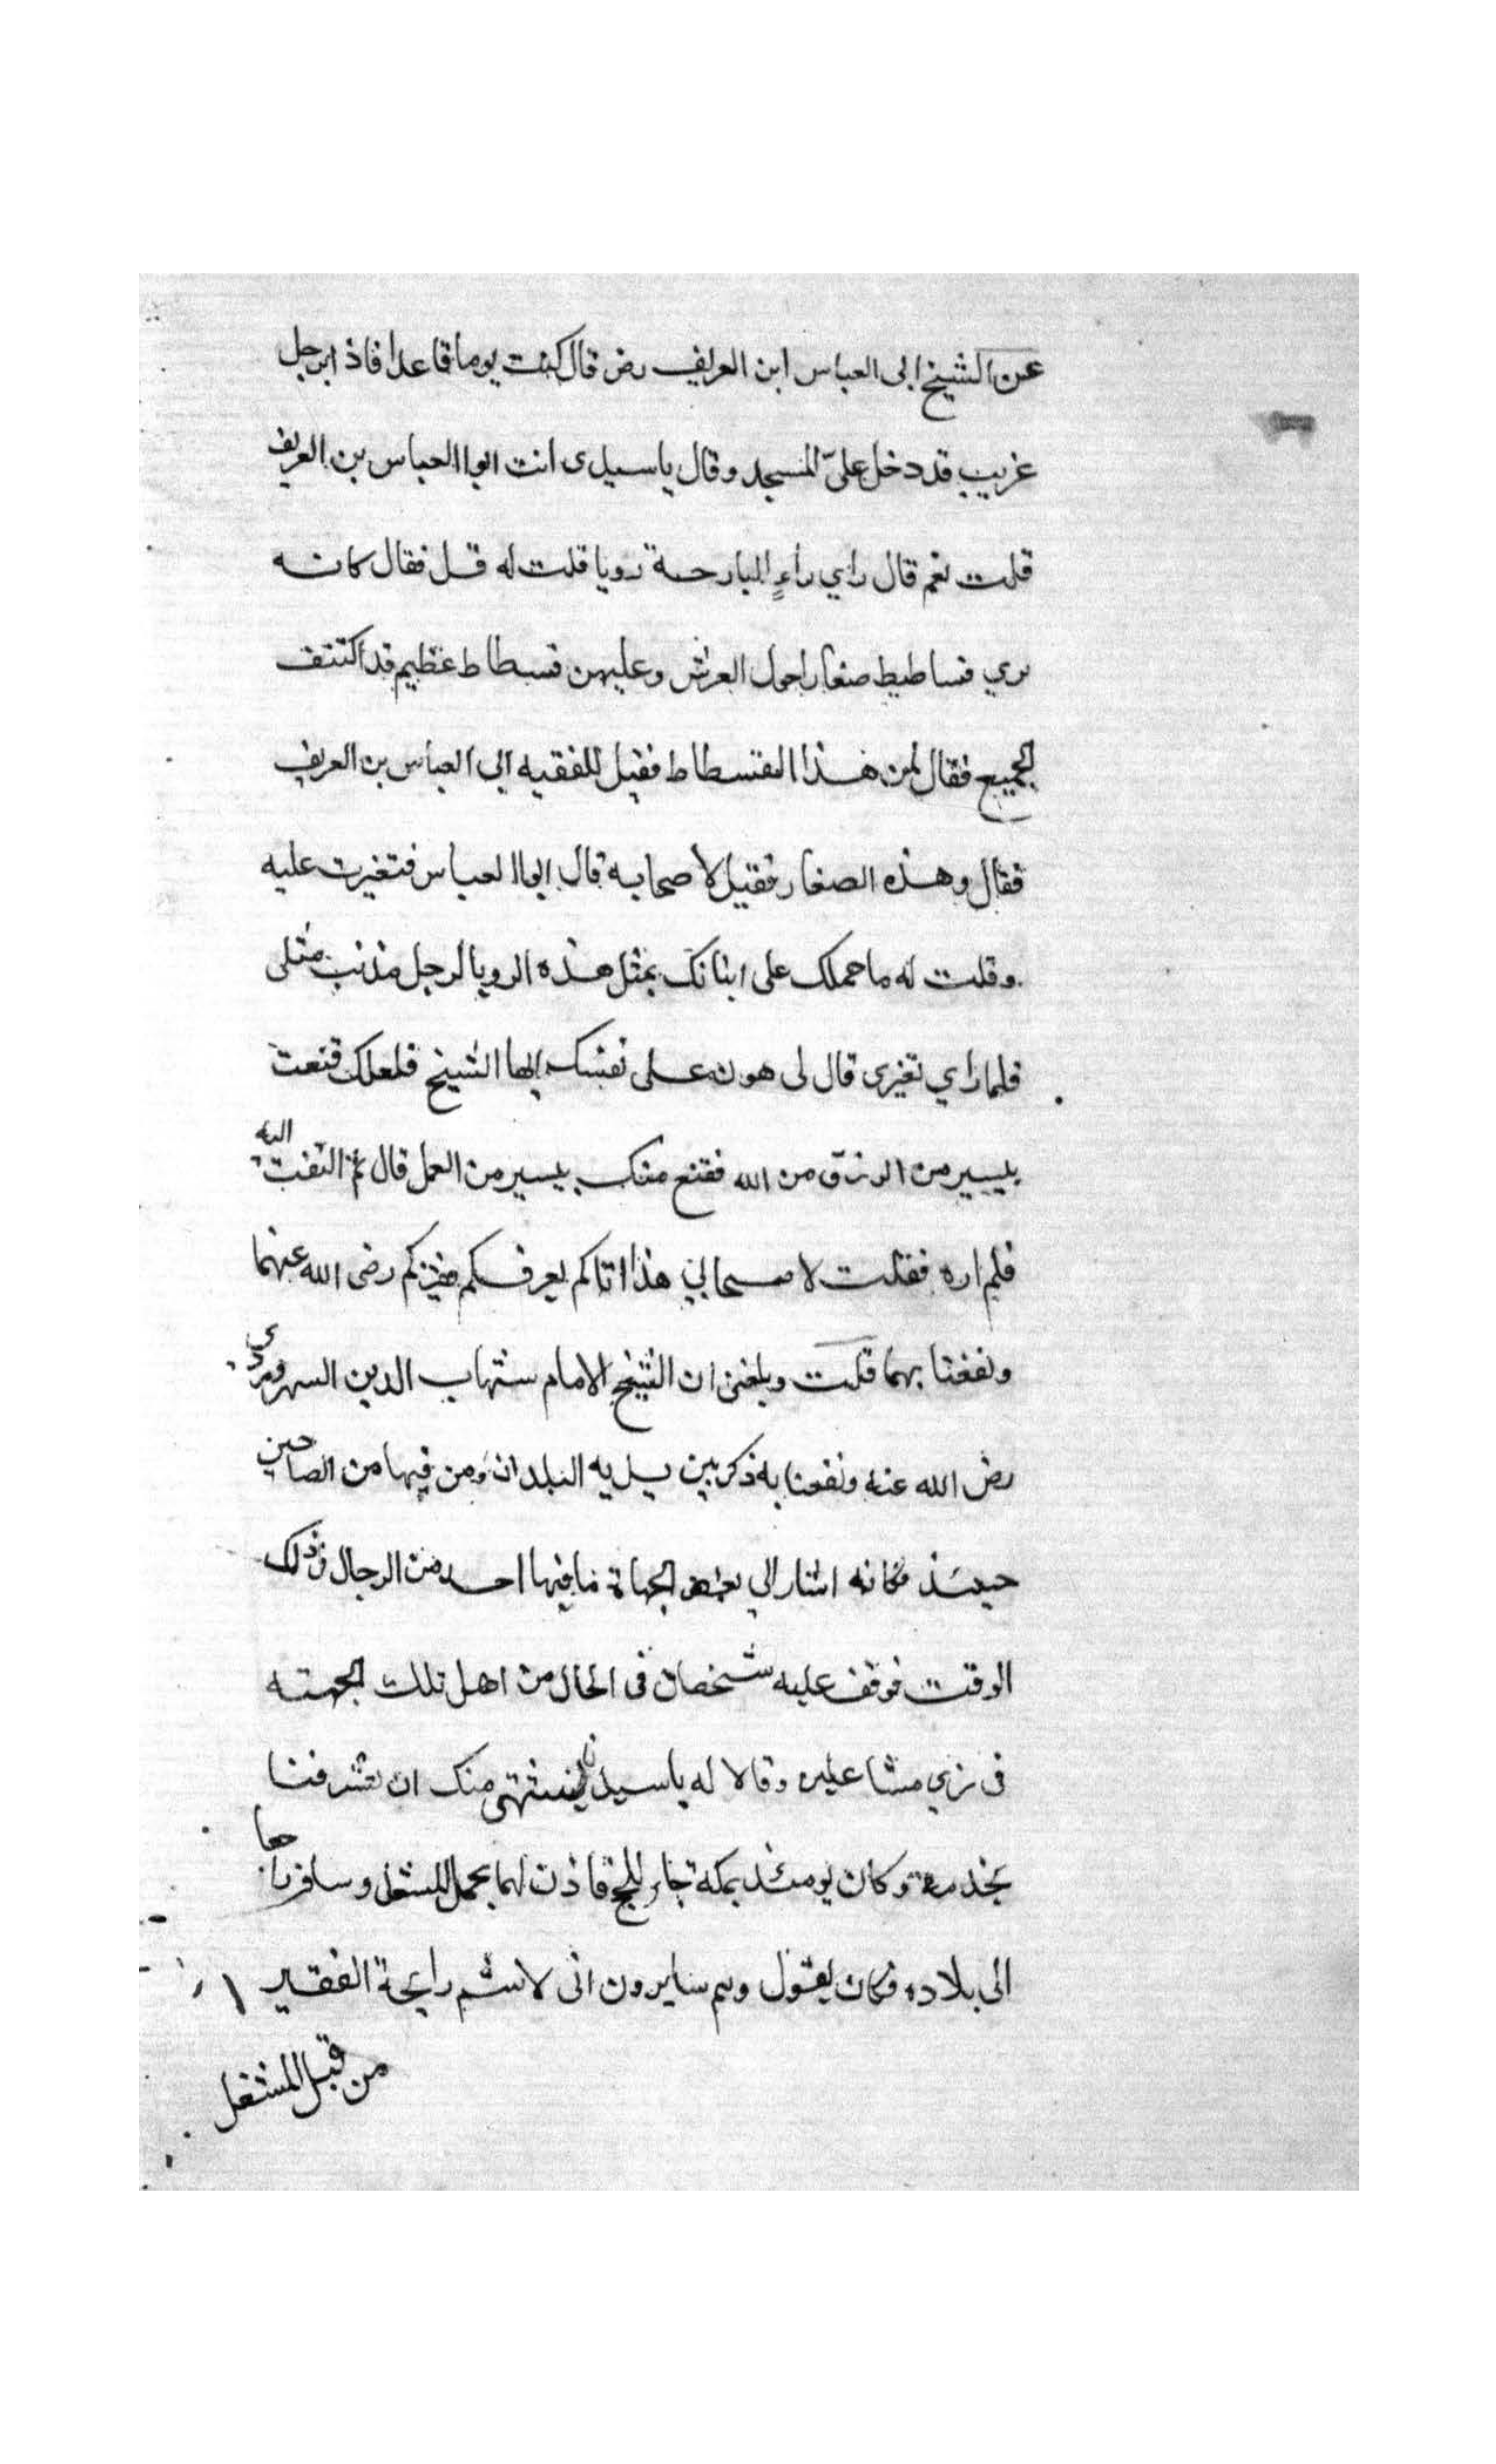 عن الشيخ ابى العباس ابن العريف رض قال كنت يوما قاعدا فاذ ابرجل
غريب قد دخل علىّ المسجد وقال ياسيدى انت ابوا العباس بن العريف
قلت نعم قال راي راءٍ البارحة رويا قلت له قل فقال كانه
يري فساطيط صغار احول العرش وعليهن فسطاط عظيم قد اكتنف
الجميع فقال لمن هذا الفسطاط فقيل للفقيه ابي العباس بن العريف
فقال وهذه الصغار فقيل لاصحابه قال ابوا العباس فتغيرت عليه
وقلت له ما حملك على اتيانك بمثل هذه الرويا لرجل مذنب مثلى
فلما راي تغيرى قال لى هون على نفسك ايها الشيخ فلعلك قنعت
بيسير من الرزق من الله فقنع منك بيسير من العمل قال ثم التفت اليه
فلم اره فقلت لاصحابي هذا اتاكم يعرفكم رضى الله عنهما
ونفعنا بهما قلت وبلغنى ان الشيخ الامام شهاب الدين السهروردي
رض الله عنه ونفعنا به ذكر بين يديه البلدان ومن فيها من الصاحين
حينئذ فكانه اشار الي بعض الجهاة ما فيها احد من الرجال في ذلك
الوقت فوقف عليه شخصان فى الحال من اهل تلك الجهته
فى زي مشاعليه وقالا له ياسيدنا نشتهى منك ان تشرفنا
بخدمة وكان يومئذ بمكة جاء للحج فاذن لهما بحمل المشعل وسافر بهما
الى بلاده فكان يقول وهم سايرون انى لاشم رايحة الفقير
من قبل المشعل